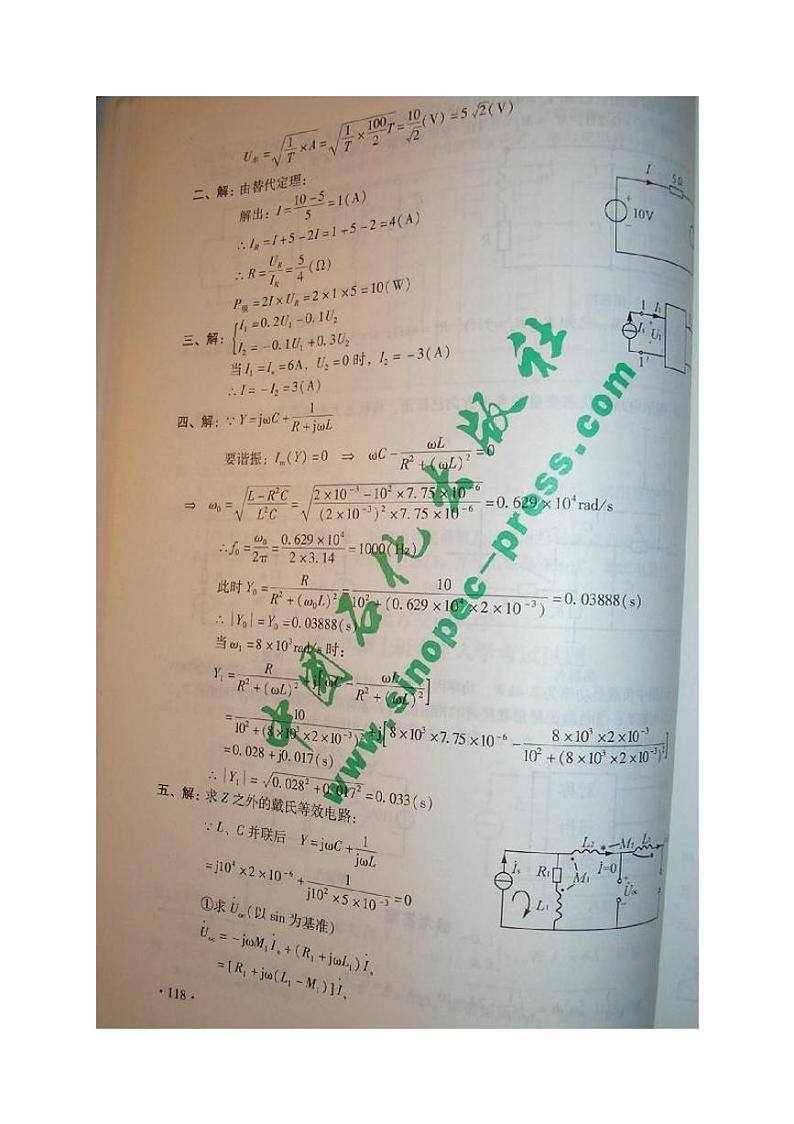 U有=√(1/T×A)=√(1/T×100/2 T)=10/√2(V)=5√2(V)
二、解:由替代定理:
解出:I=(10-5)/5=1(A)
∴I_R=I+5-2I=1+5-2=4(A)
∴R=U_R/I_R=5/4(Ω)
P吸=2I×U_R=2×1×5=10(W)
三、解:{I₁=0.2U₁-0.1U₂
I₂=-0.1U₁+0.3U₂
当I₁=I_s=6A,U₂=0时,I₂=-3(A)
∴I=-I₂=3(A)
四、解:∵Y=jωC+1/(R+jωL)
要谐振:I_m(Y)=0 ⇒ ωC-ωL/(R²+(ωL)²)=0
⇒ ω₀=√((L-R²C)/(L²C))=√((2×10⁻³-10²×7.75×10⁻⁶)/((2×10⁻³)²×7.75×10⁻⁶))=0.629×10⁴rad/s
∴f₀=ω₀/2π=(0.629×10⁴)/(2×3.14)=1000(Hz)
此时Y₀=R/(R²+(ω₀L)²)=10/(10²+(0.629×10⁴×2×10⁻³)=0.03888(s)
∴|Y₀|=Y₀=0.03888(s)
当ω₁=8×10³rad/s时:
Y₁=R/(R²+(ωL)²)+j[ωC-ωL/(R²+(ωL)²)]
=10/(10²+(8×10³×2×10⁻³)²)+j[8×10³×7.75×10⁻⁶-(8×10³×2×10⁻³)/(10²+(8×10³×2×10⁻³)²)]
=0.028+j0.017(s)
∴|Y₁|=√(0.028²+0.017²)=0.033(s)
五、解:求Z之外的戴氏等效电路:
∵L、C并联后 Y=jωC+1/(jωL)
=j10⁴×2×10⁻⁶+1/(j10²×5×10⁻³)=0
①求U̇oc(以sin为基准)
U̇oc=-jωM₁İ_s+(R₁+jωL₁)İ_s
=[R₁+jω(L₁-M₁)]İ_s
·118·
I 5Ω
+
10V
1 I₁
I_s U₁
1′
L₂ M₂ L₃
İs R₁ M₁ İ=0 + U̇oc
L₁
中国石化出版社
www.sinopec-press.com